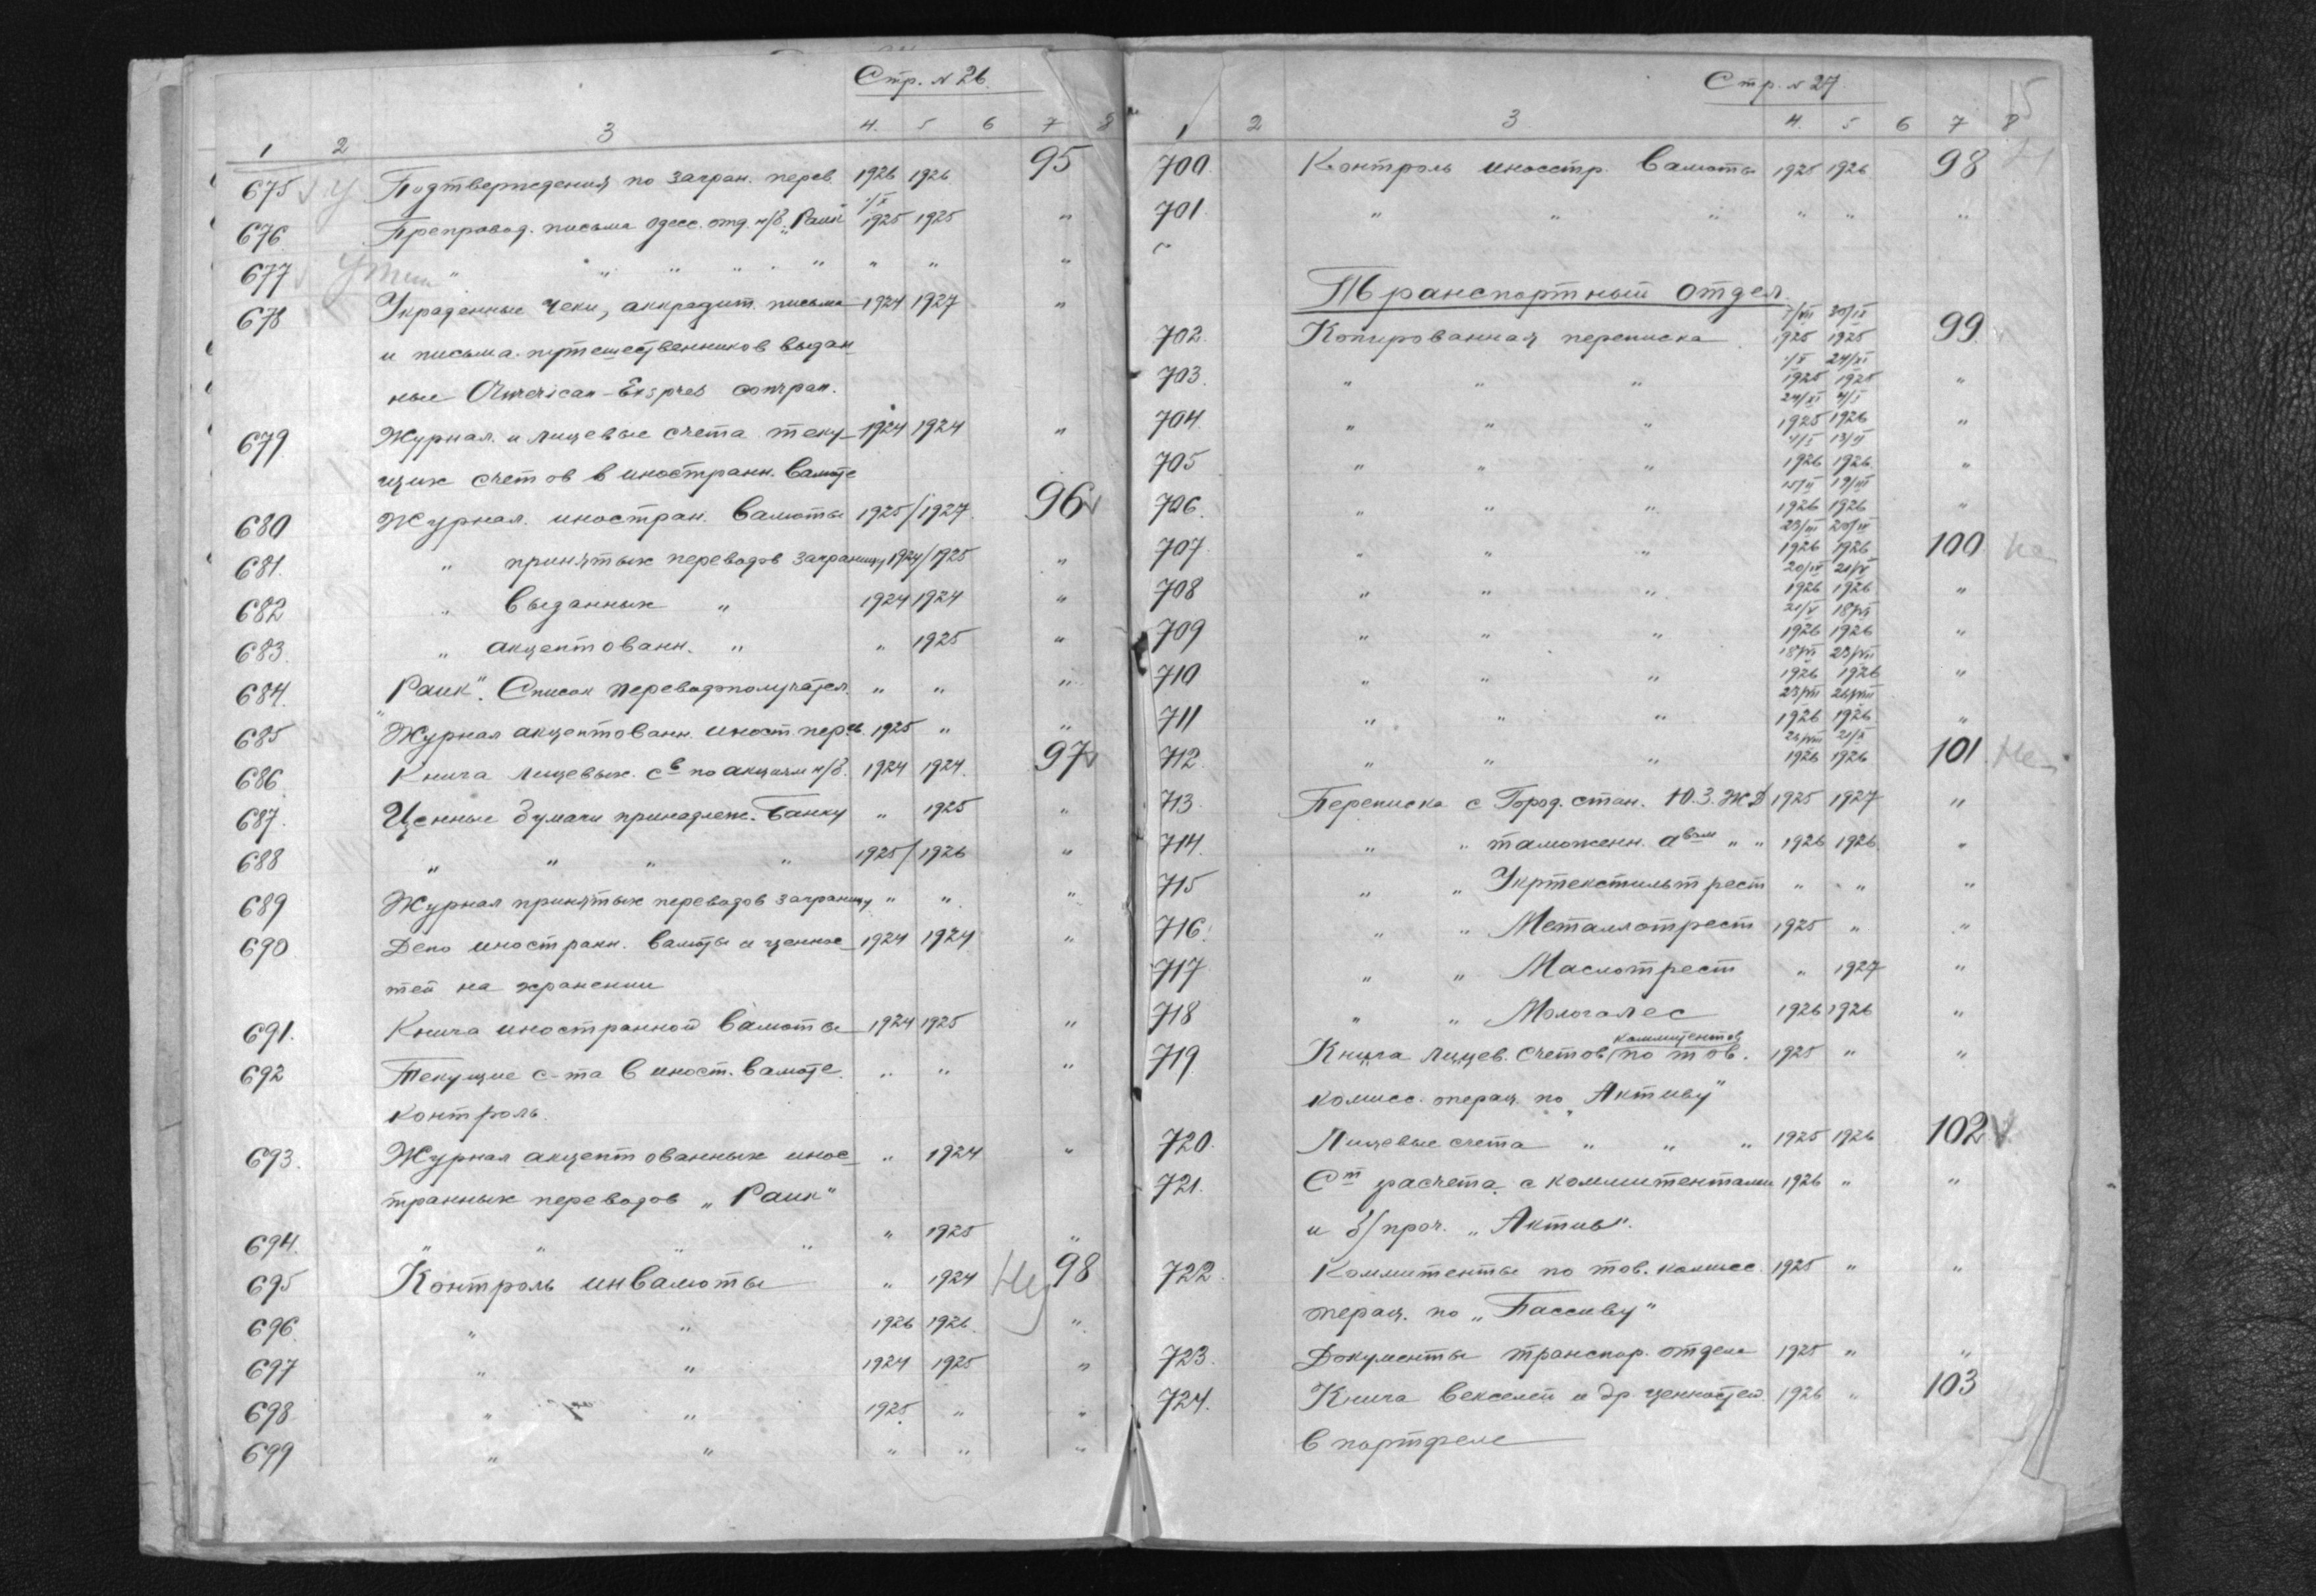 Стр. N 26.
1 2 3 4. 5 6 7 8
675 Подтверждения по загран. перев. 1926 1926 95
1/X
676. Препровод. письма Одесс. отд. н/б. „Раик" 1925 1925 "
677 " " " " " " " "
678 Украденные чеки, аккредит. письма 1924 1927 "
и письма путешественников выдан
ные American-Exspres compan.
679 Журнал и лицевые счета теку- 1924 1924 "
щих счетов в иностранн. валюте
680 Журнал. иностран. валюты 1925/1927. 96
681. " принятых переводов заграницу 1924/1925 "
682 " выданных " 1924 1924 "
683. " акцептованн. " " 1925 "
684. „Раик". Список переводополучател. " " "
685 Журнал акцептованн. иност. перев. 1925 " "
686. Книга лицевых. св по акциям н/б. 1924 1924. 97
687. Ценные бумаги принадлеж. Банку " 1925 "
688 " " " " 1925/1926 "
689 Журнал принятых переводов заграницу " " "
690 Депо иностранн. валюты и ценнос- 1924 1924 "
тей на хранении
691. Книга иностранной валюты 1924 1925 "
692 Текущие с-та в иност. валюте. " " "
контроль.
693. Журнал акцептованных инос- " 1924 "
транных переводов „Раик"
694. " " " " " 1925 "
695 Контроль инвалюты " 1924 98
696. " " 1926 1926. "
697 " " 1924 1925 "
698 " " 1925. " "
699 " " " " "
Стр. N 27.
1 2 3 4. 5 6 7 8
700. Контроль иносстр. валюты 1925 1926 98
701. " " " " " "
Транспортный отдел.
7/VII 30/IX
702. Копированная переписка 1925 1925 99
1/X 24/XI
703. " " " 1925 1925 "
24/XI 4/I
704. " " " 1925 1926 "
4/I 13/II
705 " " " 1926 1926. "
15/II 19/III
706. " " " 1926 1926 "
23/III 20/IV
707. " " " 1926 1926 100 Не
20/IV 21/V
708 " " " 1926 1926. "
21/V 18/VI
709 " " " 1926 1926 "
18/VI 23/VII
710 " " " 1926 1926 "
23/VII 26/VIII
711 " " " 1926 1926. "
26/VIII 21/X
712. " " " 1926 1926 101 Не
713. Переписка с Город. стан. Ю.З.ЖД 1925 1927 "
714. " " таможенн. авом " " 1926 1926. "
715 " " Укртекстильтрест " " "
716. " " Металлотрест 1925 " "
717 " " Маслотрест " 1927 "
718 " " Мологалес 1926 1926 "
комитентов
719. Книга лицев. счетов по тов. 1925 " "
комисс. операц. по „Активу"
720. Лицевые счета " " " 1925 1926 102
721. Ст расчета с коммитентами 1926 " "
и б/проч. „Актив".
722. Коммитенты по тов. комисс. 1925 " "
операц. по „Пассиву"
723. Документы транспор. отдела 1925 " "
724. Книга векселей и др. ценностей 1926 " 103
в портфеле